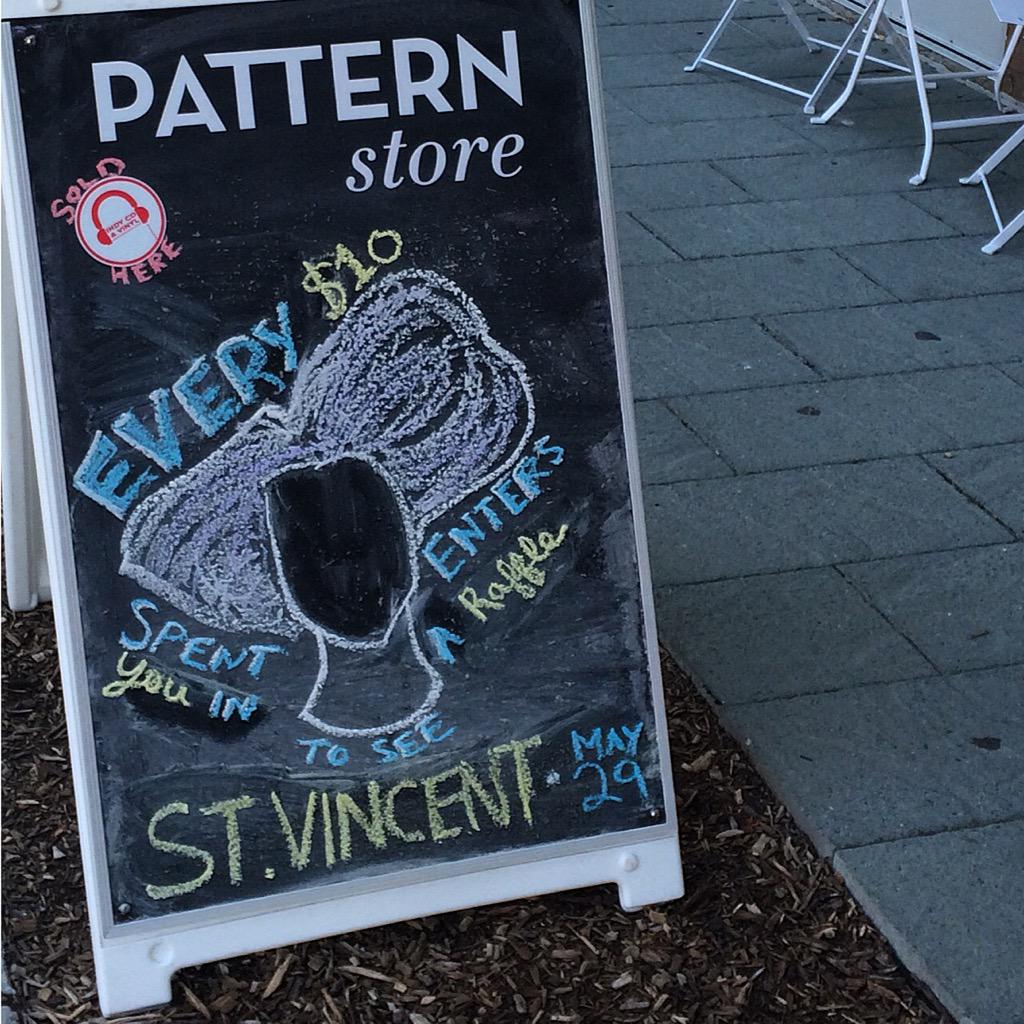 PATTERN
store
SOLD
INDY CD
& VINYL
HERE
EVERY $10
SPENT ENTERS
You IN A Raffle
TO SEE
ST. VINCENT · MAY
29